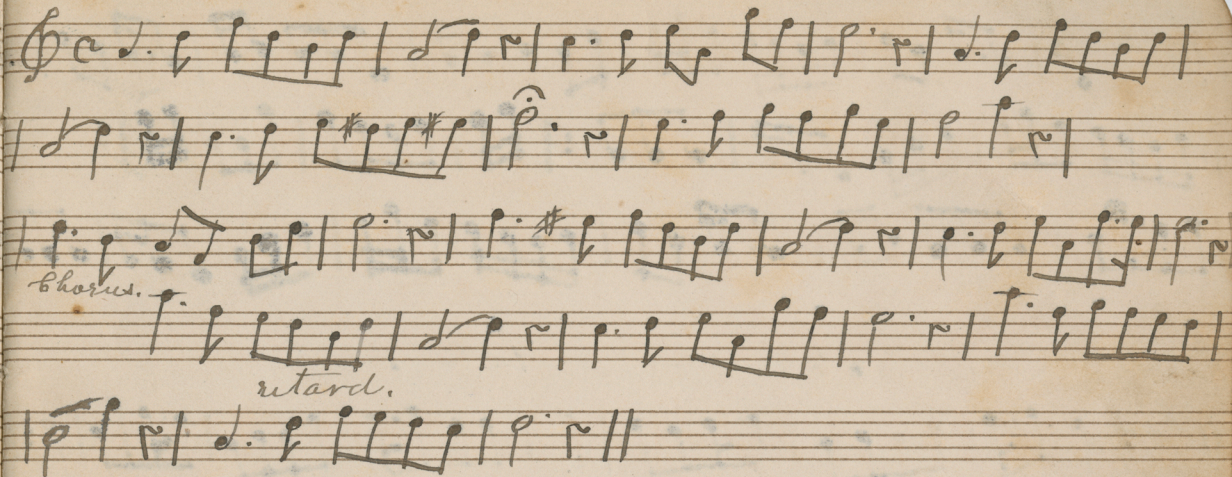 Chorus.
retard.